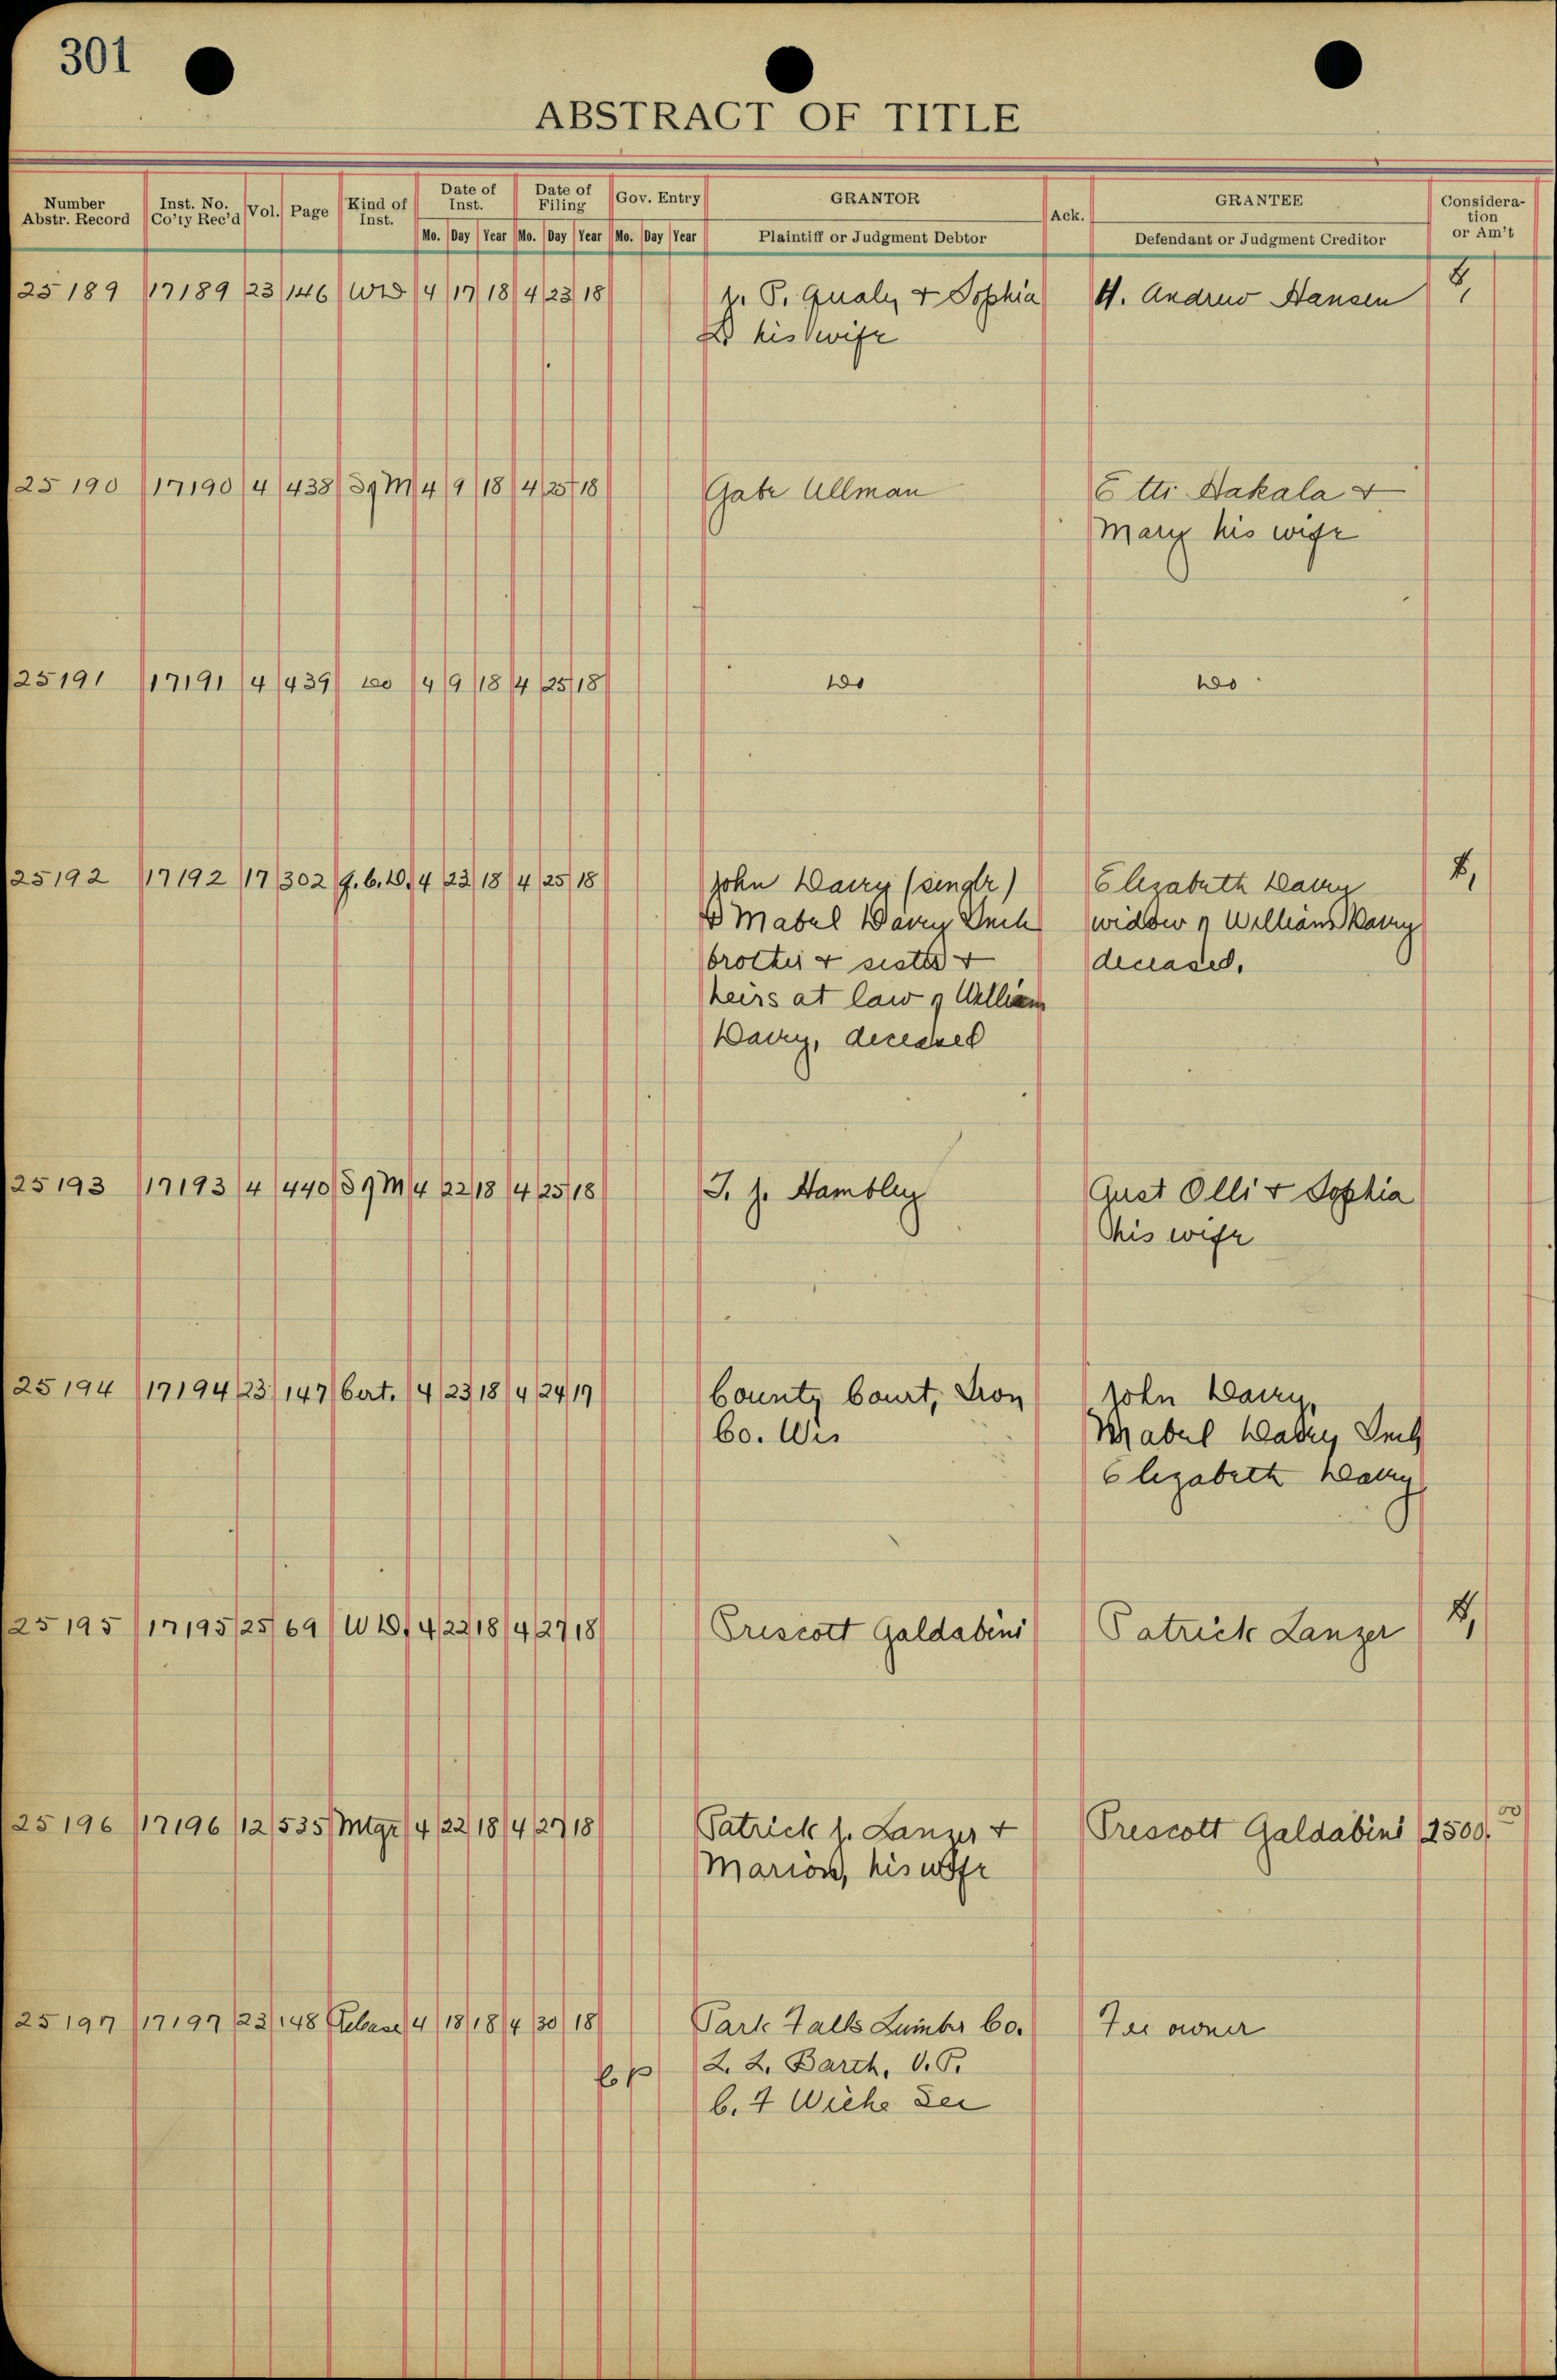 301
ABSTRACT OF TITLE
Number Abstr. Record Inst. No. Co'ty Rec'd Vol. Page Kind of Inst. Date of Inst. Date of Filing Gov. Entry GRANTOR Ack. GRANTEE Consideration or Am't
Mo. Day Year Mo. Day Year Mo. Day Year Plaintiff or Judgment Debtor Defendant or Judgment Creditor
25189 17189 23 146 WD 4 17 18 4 23 18 P. Qualy & Sophia H. Andrew Hansen
his wife
25190 17190 4 438 SgM 4 9 18 4 25 18 Gabe Ullman Etti Hakala &
Mary his wife
25191 17191 4 439 do 4 9 18 4 25 18 do do
25192 17192 17 302 Q.C.D. 4 23 18 4 25 18 John Davey (single) Elizabeth Davey
& Mabel Davey widow of William Davey
brother & sister & deceased.
heirs at law of William
Davey, deceased
25193 17193 4 440 SgM 4 22 18 4 25 18 T. J. Hambley Gust Olli & Sophia
his wife
25194 17194 23 147 Cert. 4 23 18 4 24 17 County Court, Iron John Davey,
Co. Wis Mabel Davey
Elizabeth Davey
25195 17195 25 69 WD, 4 22 18 4 27 18 Prescott Galdabini Patrick Lanzer
25196 17196 12 535 Mtge 4 22 18 4 27 18 Patrick J. Lanzer & Prescott Galdabini 2500.00
Marion, his wife
25197 17197 23 148 Release 4 18 18 4 30 18 Park Falls Lumber Co. Fee owner
L. L. Barth, V.P.
C. F Wiehe Sec